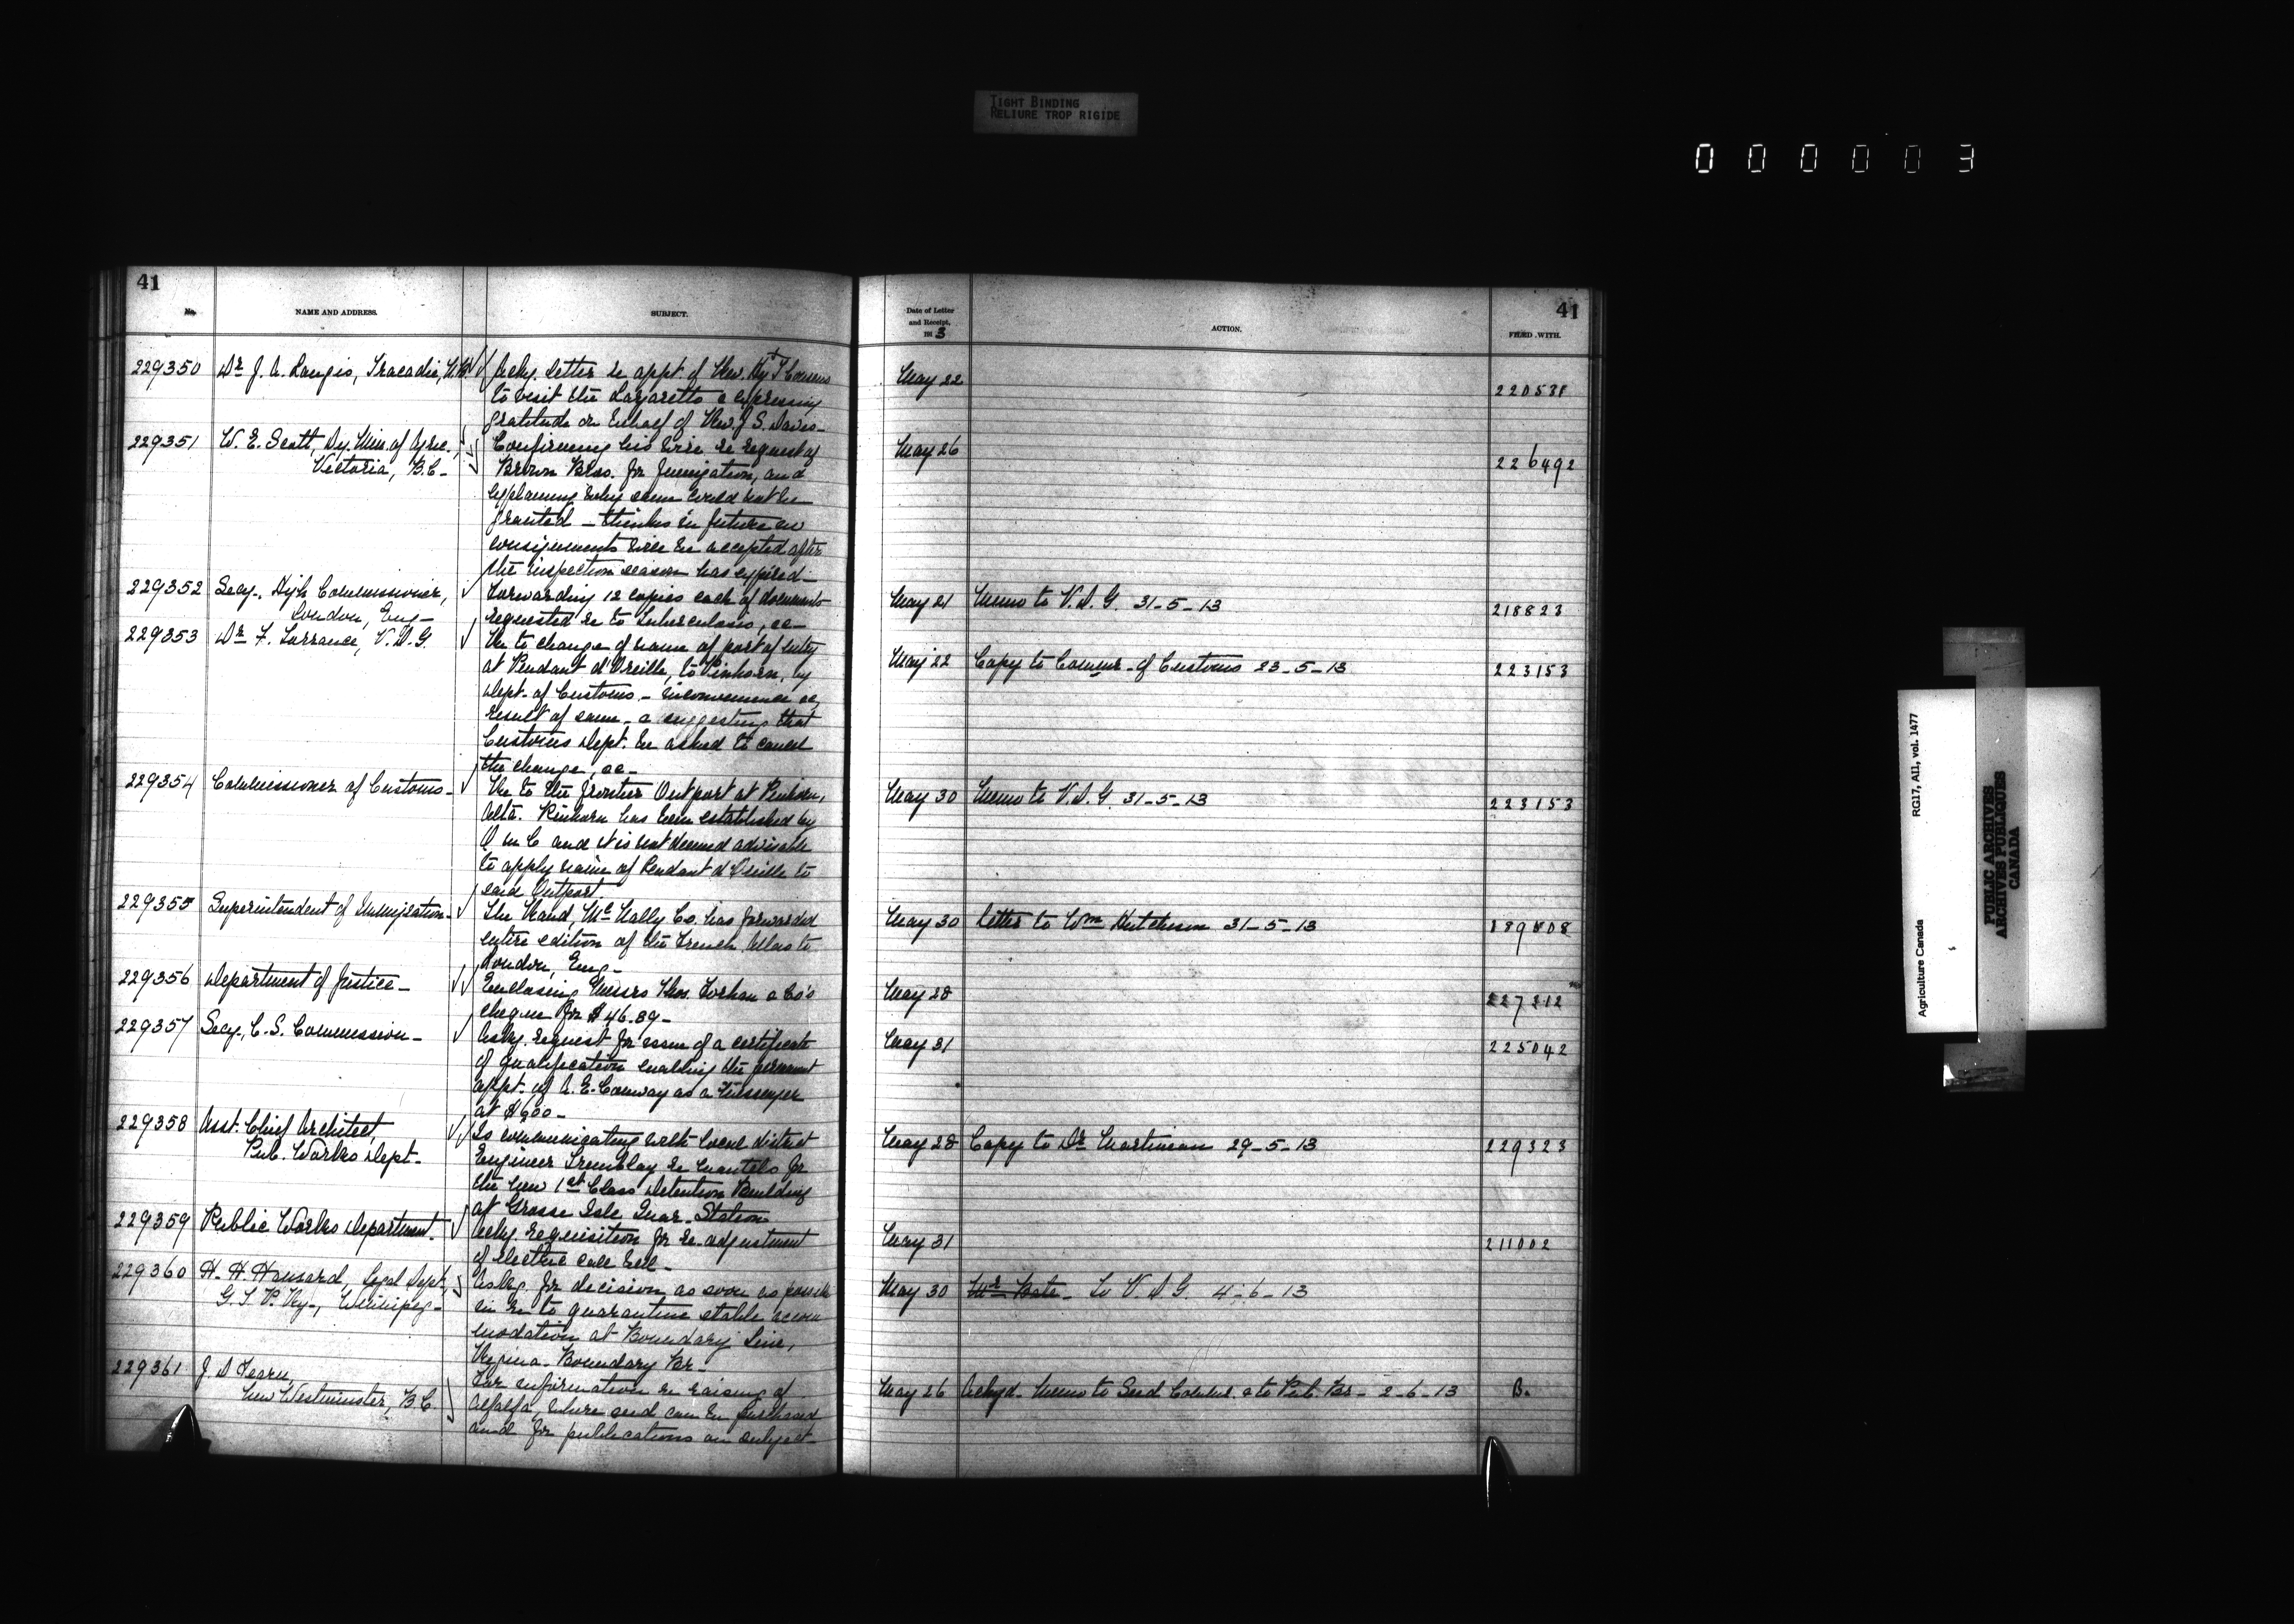 TIGHT BINDING
RELIURE TROP RIGIDE
000003
41
No.
NAME AND ADDRESS.
SUBJECT.
229350 Dr J. A. Langis, Tracadie, N.B.
Ackg. letter re appt. of Rev. Hy T Cousens
to visit the Lazaretto & expressing
gratitude on behalf of Rev. J. S. Davis-
229351 W. E. Scott, Dy. Min. of Agric.,
Victoria, B.C-
Confirming his wire re request of
Brown Bros. for fumigation, and
explaining why same could not be
granted - thinks in future no
consignments will be accepted after
the inspection season has expired-
229352 Secy-. High Commissioner,
London, Eng-
Forwarding 12 copies each of documents
requested re to Tuberculosis, &c-
229353 Dr F. Torrance, V.D.G.
Re to change of name of port of entry
at Pendant d'Oreille, to Pinhorn, by
Dept. of Customs.- inconvenience as
result of same - & suggesting that
Customs Dept. be asked to cancel
the change, &c-
229354 Commissioner of Customs-
Re to the frontier Outport at Pinhorn,
Alta. Pinhorn has been established by
O in C and it is not deemed advisable
to apply name of Pendant d'Oreille to
said Outport.
229355 Superintendent of Immigration-
The Rand McNally Co. has forwarded
entire edition of the French Atlas to
London, Eng-
229356 Department of Justice-
Enclosing Messrs Thos. Forhan & Co's
cheque for $46.89-
229357 Secy, C.S. Commission-
Askg. request for issue of a certificate
of qualification enabling the permanent
appt. of A. E. Conway as a Messenger
at $600-
229358 Asst. Chief Architect,
Pub. Works Dept-
Is communicating with local district
Engineer Tremblay re mantels for
the new 1st Class Detention Building
at Grosse Isle Quar. Station-
229359 Public Works Department.
Ackg. requisition for re-adjustment
of electric call bell-
229360 H. H. Hansard, Legal Dept,
G.T.P. Ry-, Winnipeg-
Askg. for decision as soon as possible
in re to quarantine stable accom
modation at Boundary Line,
Regina-Boundary Br-
229361 J. D Fearn,
New Westminster, B.C.
For information re raising of
alfalfa, where seed can be purchased
and for publications on subject-
41
Date of Letter
and Receipt,
1913
ACTION.
FILED WITH.
May 22 220531
May 26 226492
May 21 Memo to V.D.G. 31-5-13 218823
May 22 Copy to Commr. of Customs 23-5-13 223153
May 30 Memo to V.D.G. 31-5-13 223153
May 30 Letter to Wm Hutchison 31-5-13 189808
May 28 227212
May 31 225042
May 28 Copy to Dr Martineau 29-5-13 229323
May 31 211002
May 30 Mr Bate - To V.D.G. 4-6-13
May 26 Ackgd- Memo to Seed Commr. & to Pub. Br- 2-6-13 B.
Agriculture Canada RG17, AII, vol. 1477
PUBLIC ARCHIVES
ARCHIVES PUBLIQUES
CANADA